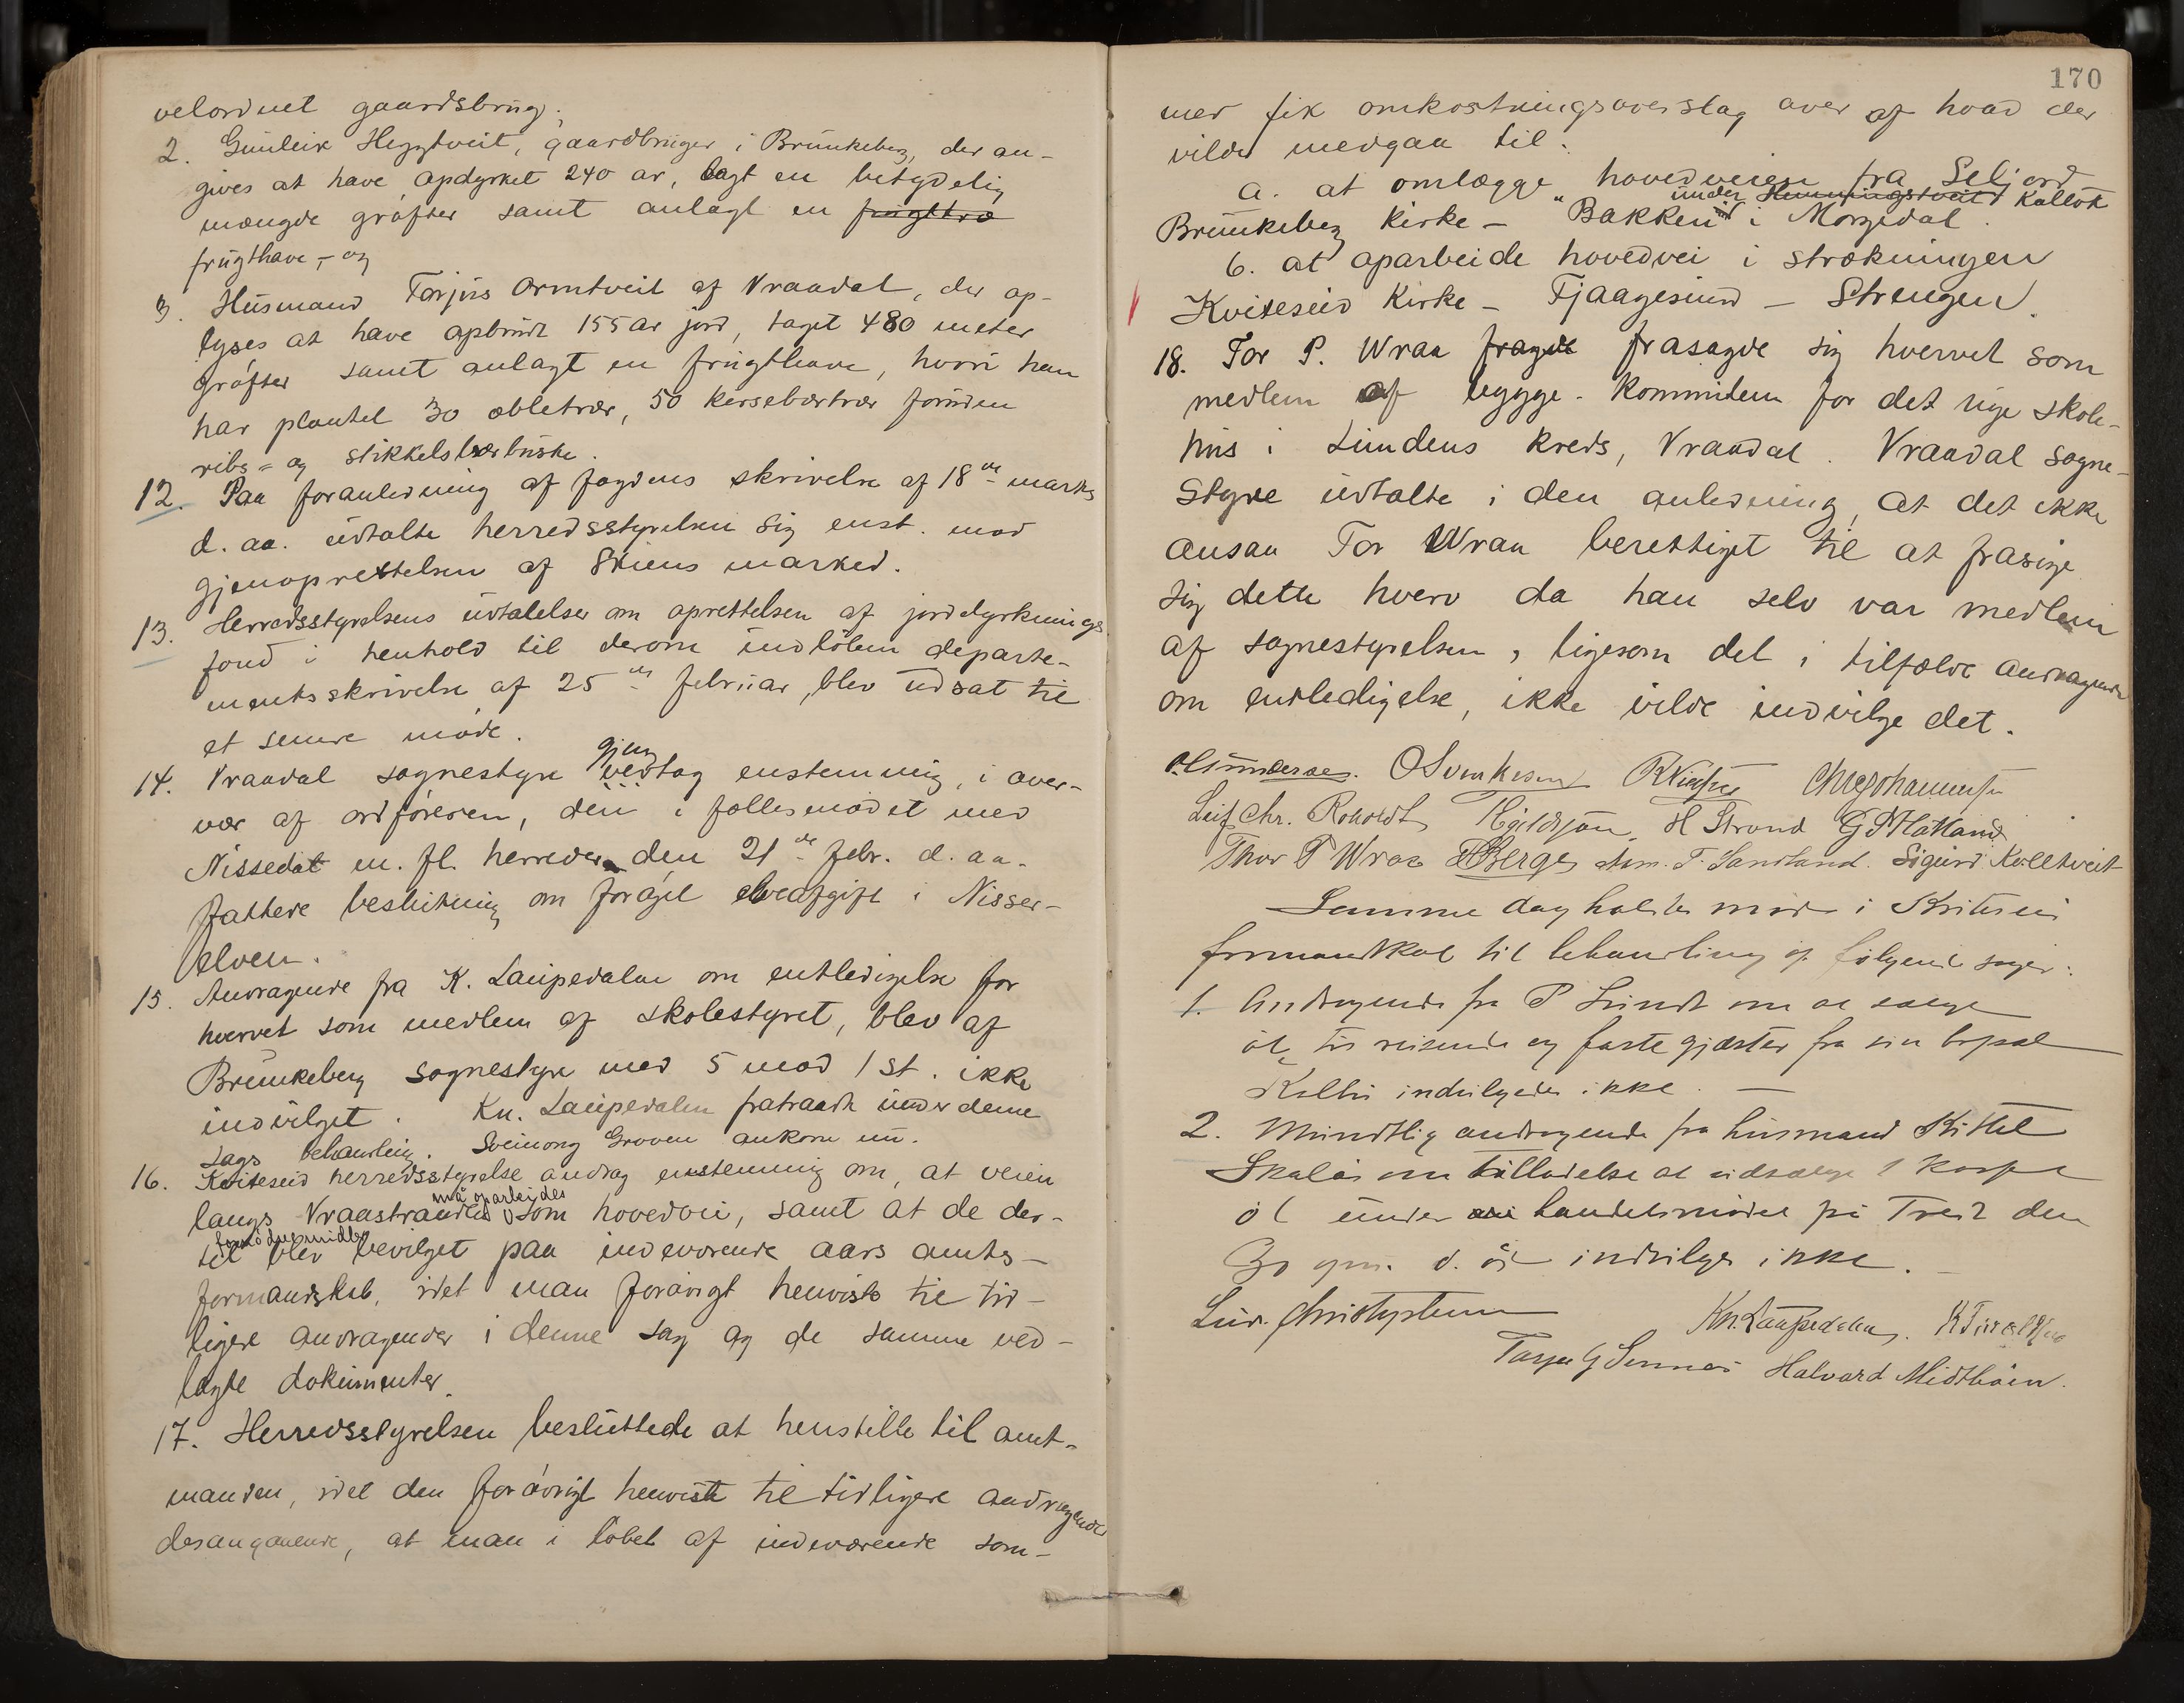 velordnet gaardsbrug.
2. Gunleik Heggtveit, gaardbruger i Brunkeberg, der an-
gives at have opdyrket 240 ar, lagt en betydelig
mængde grøfter samt anlagt en frugttræ
frugthave,- og
3. Husmand Torjus Ormtveit af Vraadal, der op-
lyses at have opbrudt 155 ar jord, taget 480 meter
grøfter samt anlagt en frugthave, hvori han
har plantet 30 æbletrær, 50 kirsebærtrær foruden
ribs- og stikkelsbærbuske.
12. Paa foranledning af fogdens skrivelse af 18de marts
d. aa. udtalte herredsstyrelsen sig enst. mod
gjenoprettelsen af Skiens marked.
13. Herredsstyrelsens udtalelser om oprettelsen af jorddyrknings
fond i henhold til derom indløben departe-
mentsskrivelse af 25de februar, blev udsat til
et senere møde.
gjen
14. Vraadal sognestyre vedtog enstemmig, i over-
vær af ordføreren, den i fællesmødet med
Nissedal m. fl. herreder den 21de febr. d. aa.
fattede beslutning om forøget elveafgift i Nisser-
elven.
15. Andragende fra K. Laupedalen om entledigelse for
hvervet som medlem af skolestyret, blev af
Brunkeberg sognestyre med 5 mod 1 st. ikke
indvilget. Kn. Laupedalen fratraadte under denne
sags behandling. Sveinong Groven ankom nu.
16. Kviteseid herredsstyrelse androg enstemmig om, at veien
må oparbeides
langs Vraastranden som hovedvei, samt at de der-
fornødne midler
til blev bevilget paa indeværende aars amts-
formandskab, idet man forøvrigt henviste til tid-
ligere andragender i denne sag og de samme ved-
lagte dokumenter.
17. Herredsstyrelsen besluttede at henstille til amt-
manden, idet den forøvrigt henviste til tidligere andragender
desangaaende, at man i løbet af indeværende som-
170
mer fik omkostningsoverslag over af hvad der
vilde medgaa til:
a. at omlægge hovedveien fra Seljord
under Henningstveit Kallok
Brunkeberg kirke - Bakken i Morgedal.
b. at oparbeide hovedvei i strækningen
Kviteseid Kirke - Fjaagesund - Strengen.
18. Tor P. Wraa fragde frasagde sig hvervet som
medlem af bygge-kommiteen for det nye skole-
hus i Lundens kreds, Vraadal. Vraadal sogne-
styre udtalte i den anledning, at det ikke
ansaa Tor Wraa berettiget til at frasige
sig dette hverv da han selv var medlem
af sognestyrelsen, ligesom det i tilfælde andragende
om entledigelse, ikke vilde indvilge det.
O Svenkesen
Leif Chr. Roholdt H Strond
Thor P Wraa Berge T. Sandland. Sigurd Kolltveit
Samme dag holdtes møde i Kviteseid
formandskab til behandling af følgende sager:
1. Andragende fra P Lundt om at sælge
øl til reisende og faste gjæster fra sin bopæl
indvilgedes ikke. -
2. Mundtlig andragende fra husmand Kittel
Skalås om tilladelse at udsælge 1 Kasse
øl under handelsmødet på Treit den
30 d. år indvilges ikke. -
Lur. Christophersen Kn. Laupedalen.
Halvord Midtbøen.